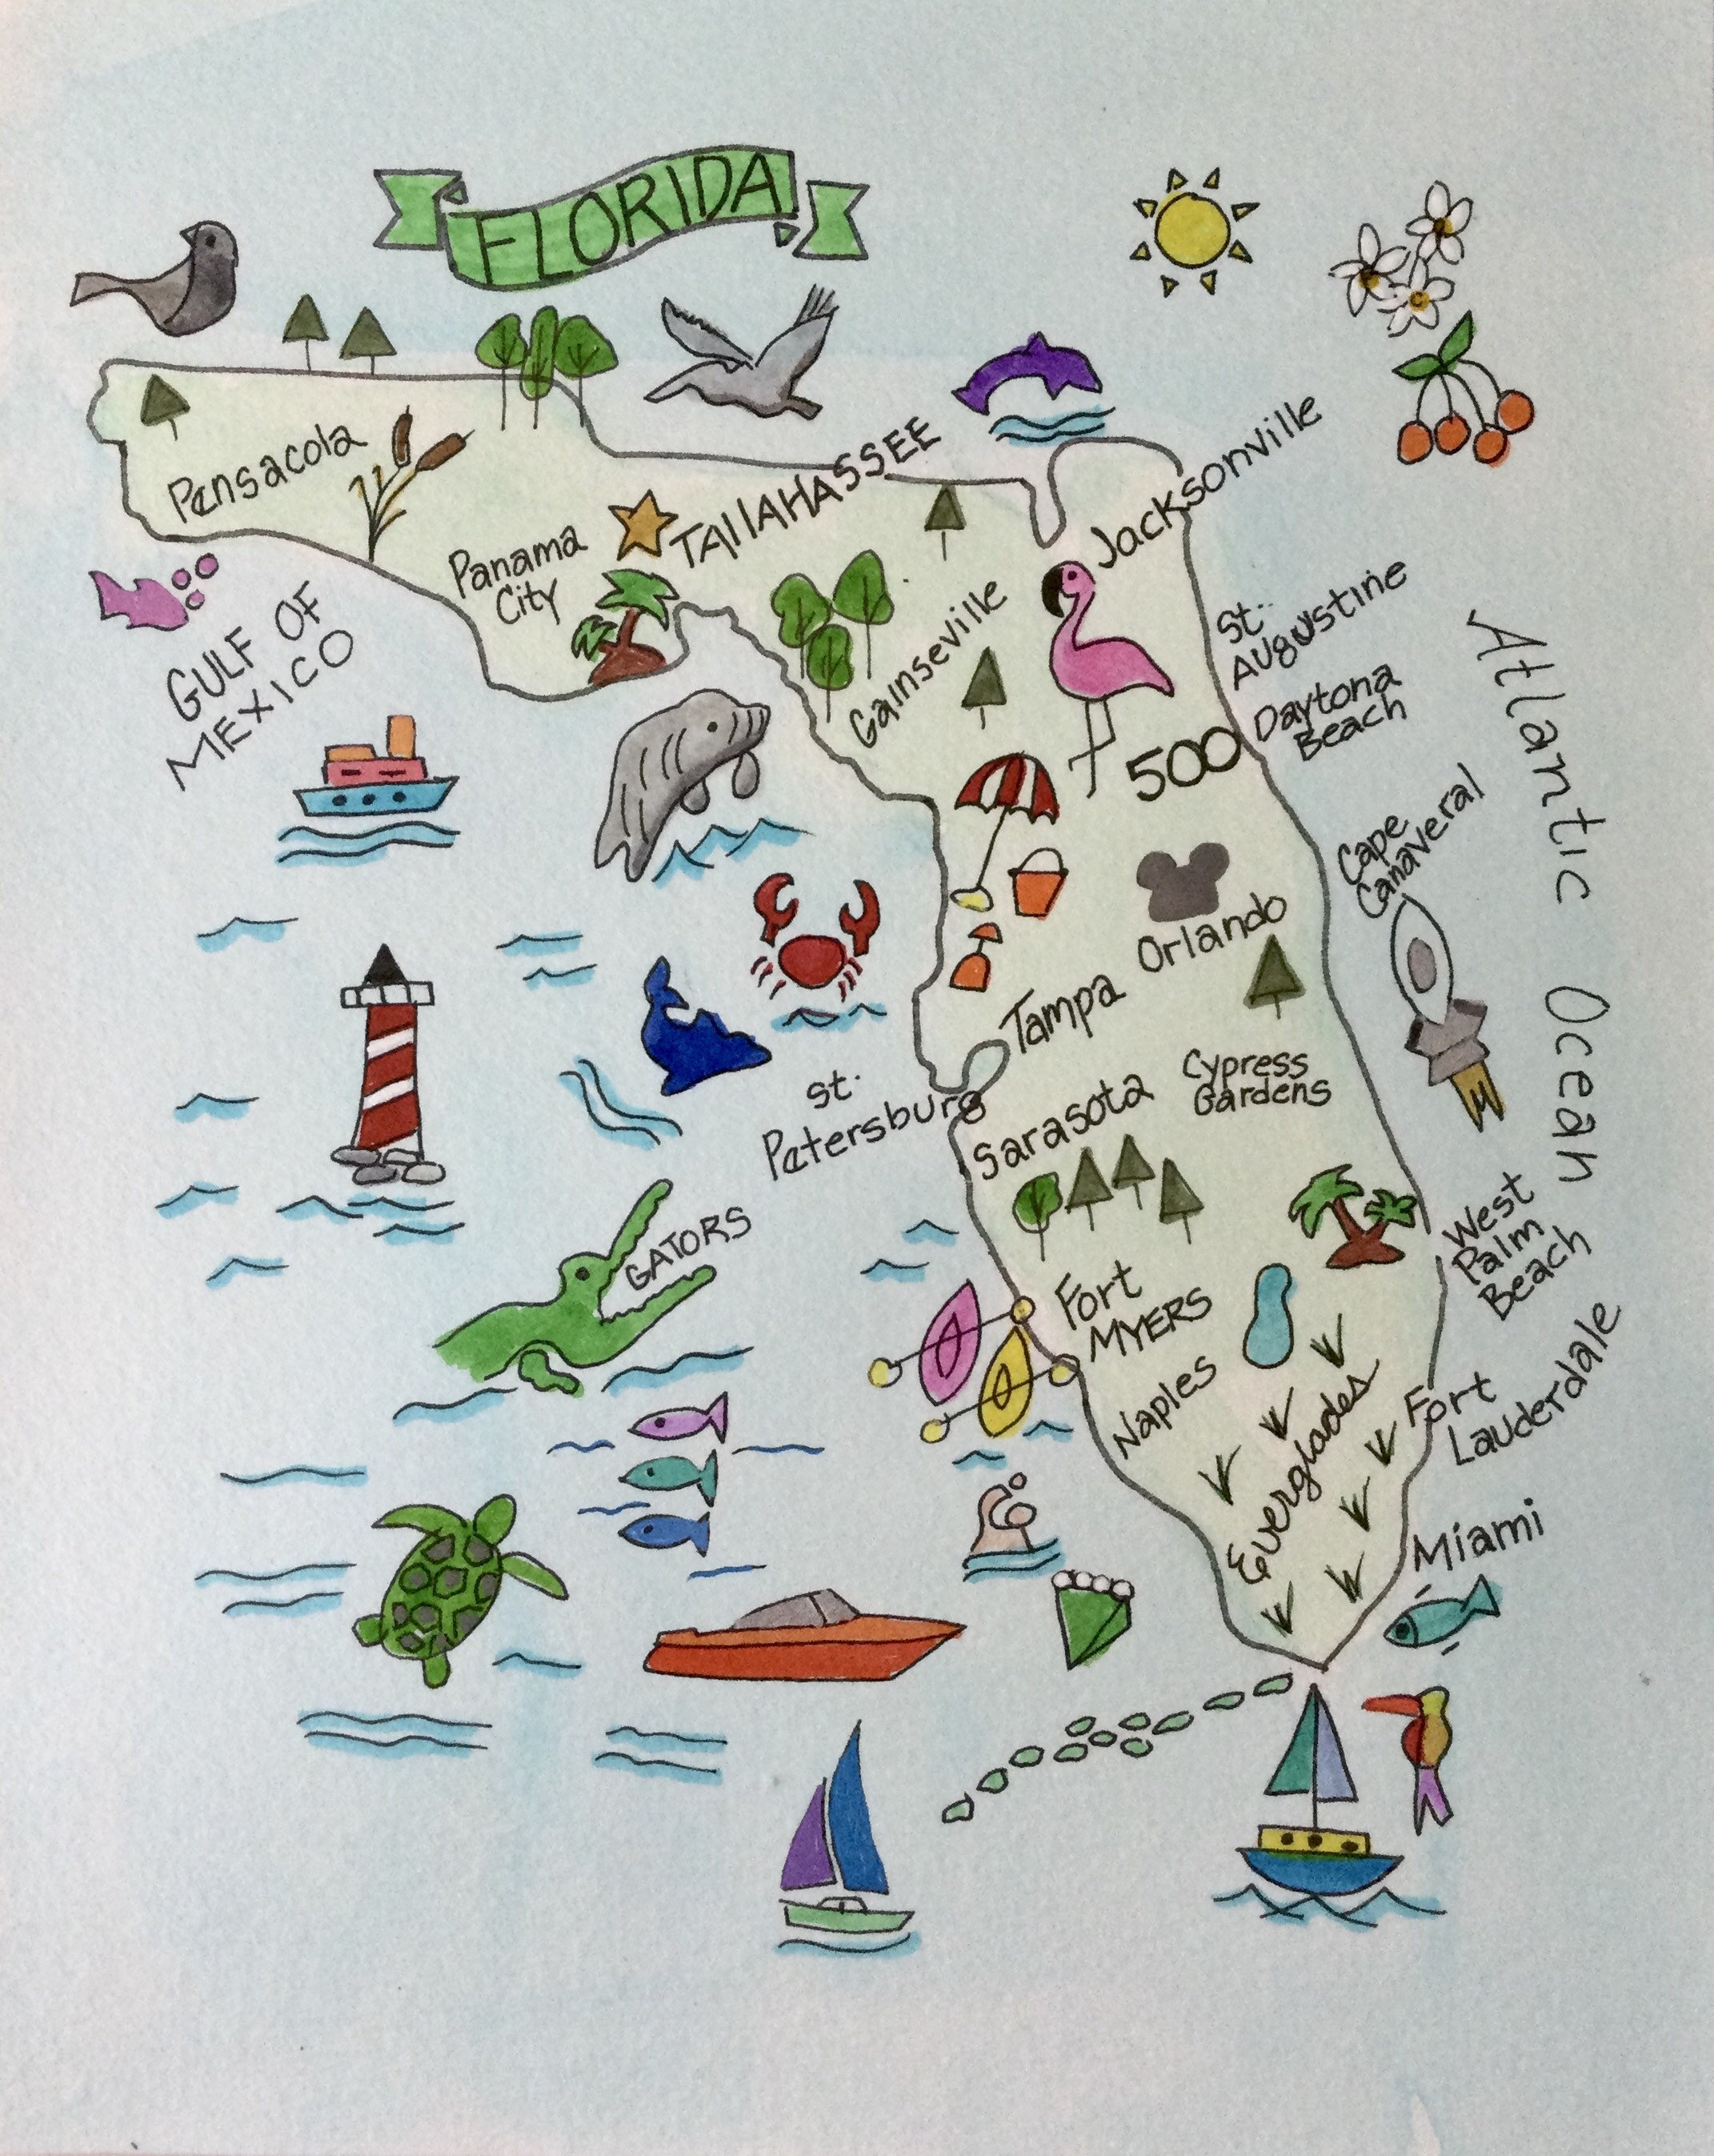 FLORIDA
Pensacola
Panama
City
TALLAHASSEE
Jacksonville
GULF OF
MEXICO
Gainseville
St.
Augustine
Daytona
Beach
500
Atlantic Ocean
Cape
Canaveral
Orlando
Tampa
Cypress
Gardens
St.
Petersburg
Sarasota
GATORS
West
Palm
Beach
Fort
MYERS
Naples
Everglades
Fort
Lauderdale
Miami